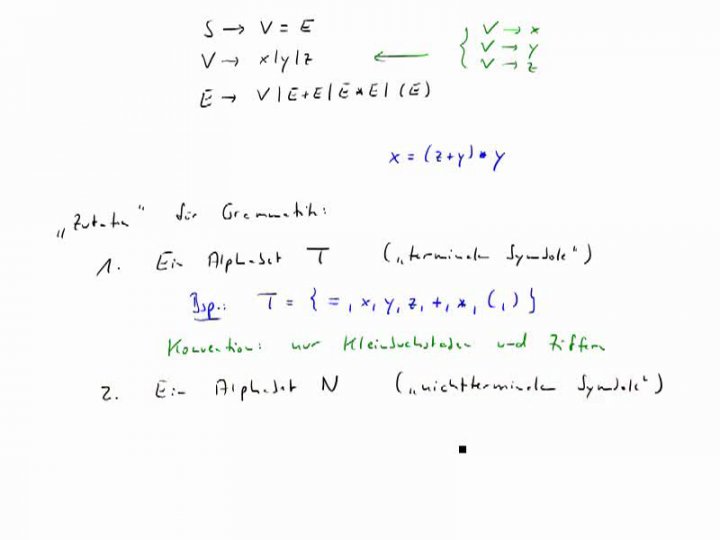 S → V = E
V → x|y|z ← { V → x
V → y
V → z
E → V|E+E|E*E|(E)
x = (z+y)*y
„Zutaten" für Grammatik:
1. Ein Alphabet T („terminale Symbole")
Bsp.: T = { =, x, y, z, +, *, (, ) }
Konvention: nur Kleinbuchstaben und Ziffern
2. Ein Alphabet N („nichtterminale Symbole")